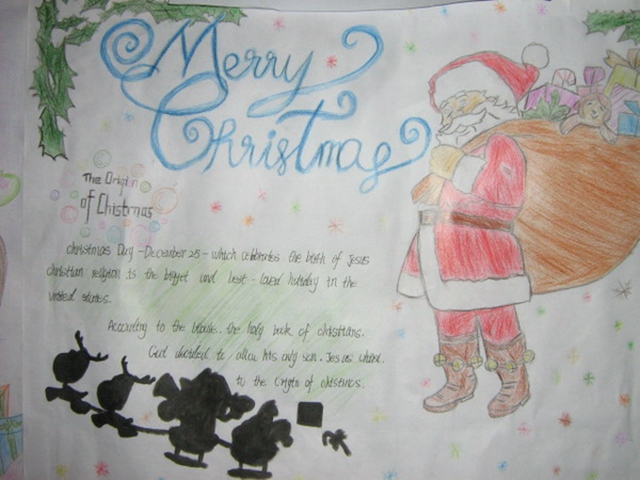 Merry
Christmas
The Origin
of Chistmas
christmas Day - December 25 - which celebrates the birth of Jesus
christian religion is the biggest and best - loved holiday in the
united states.
According to the , the holy book of christians.
God decided to allow his only son. Jesus
to the Origin of christmas.